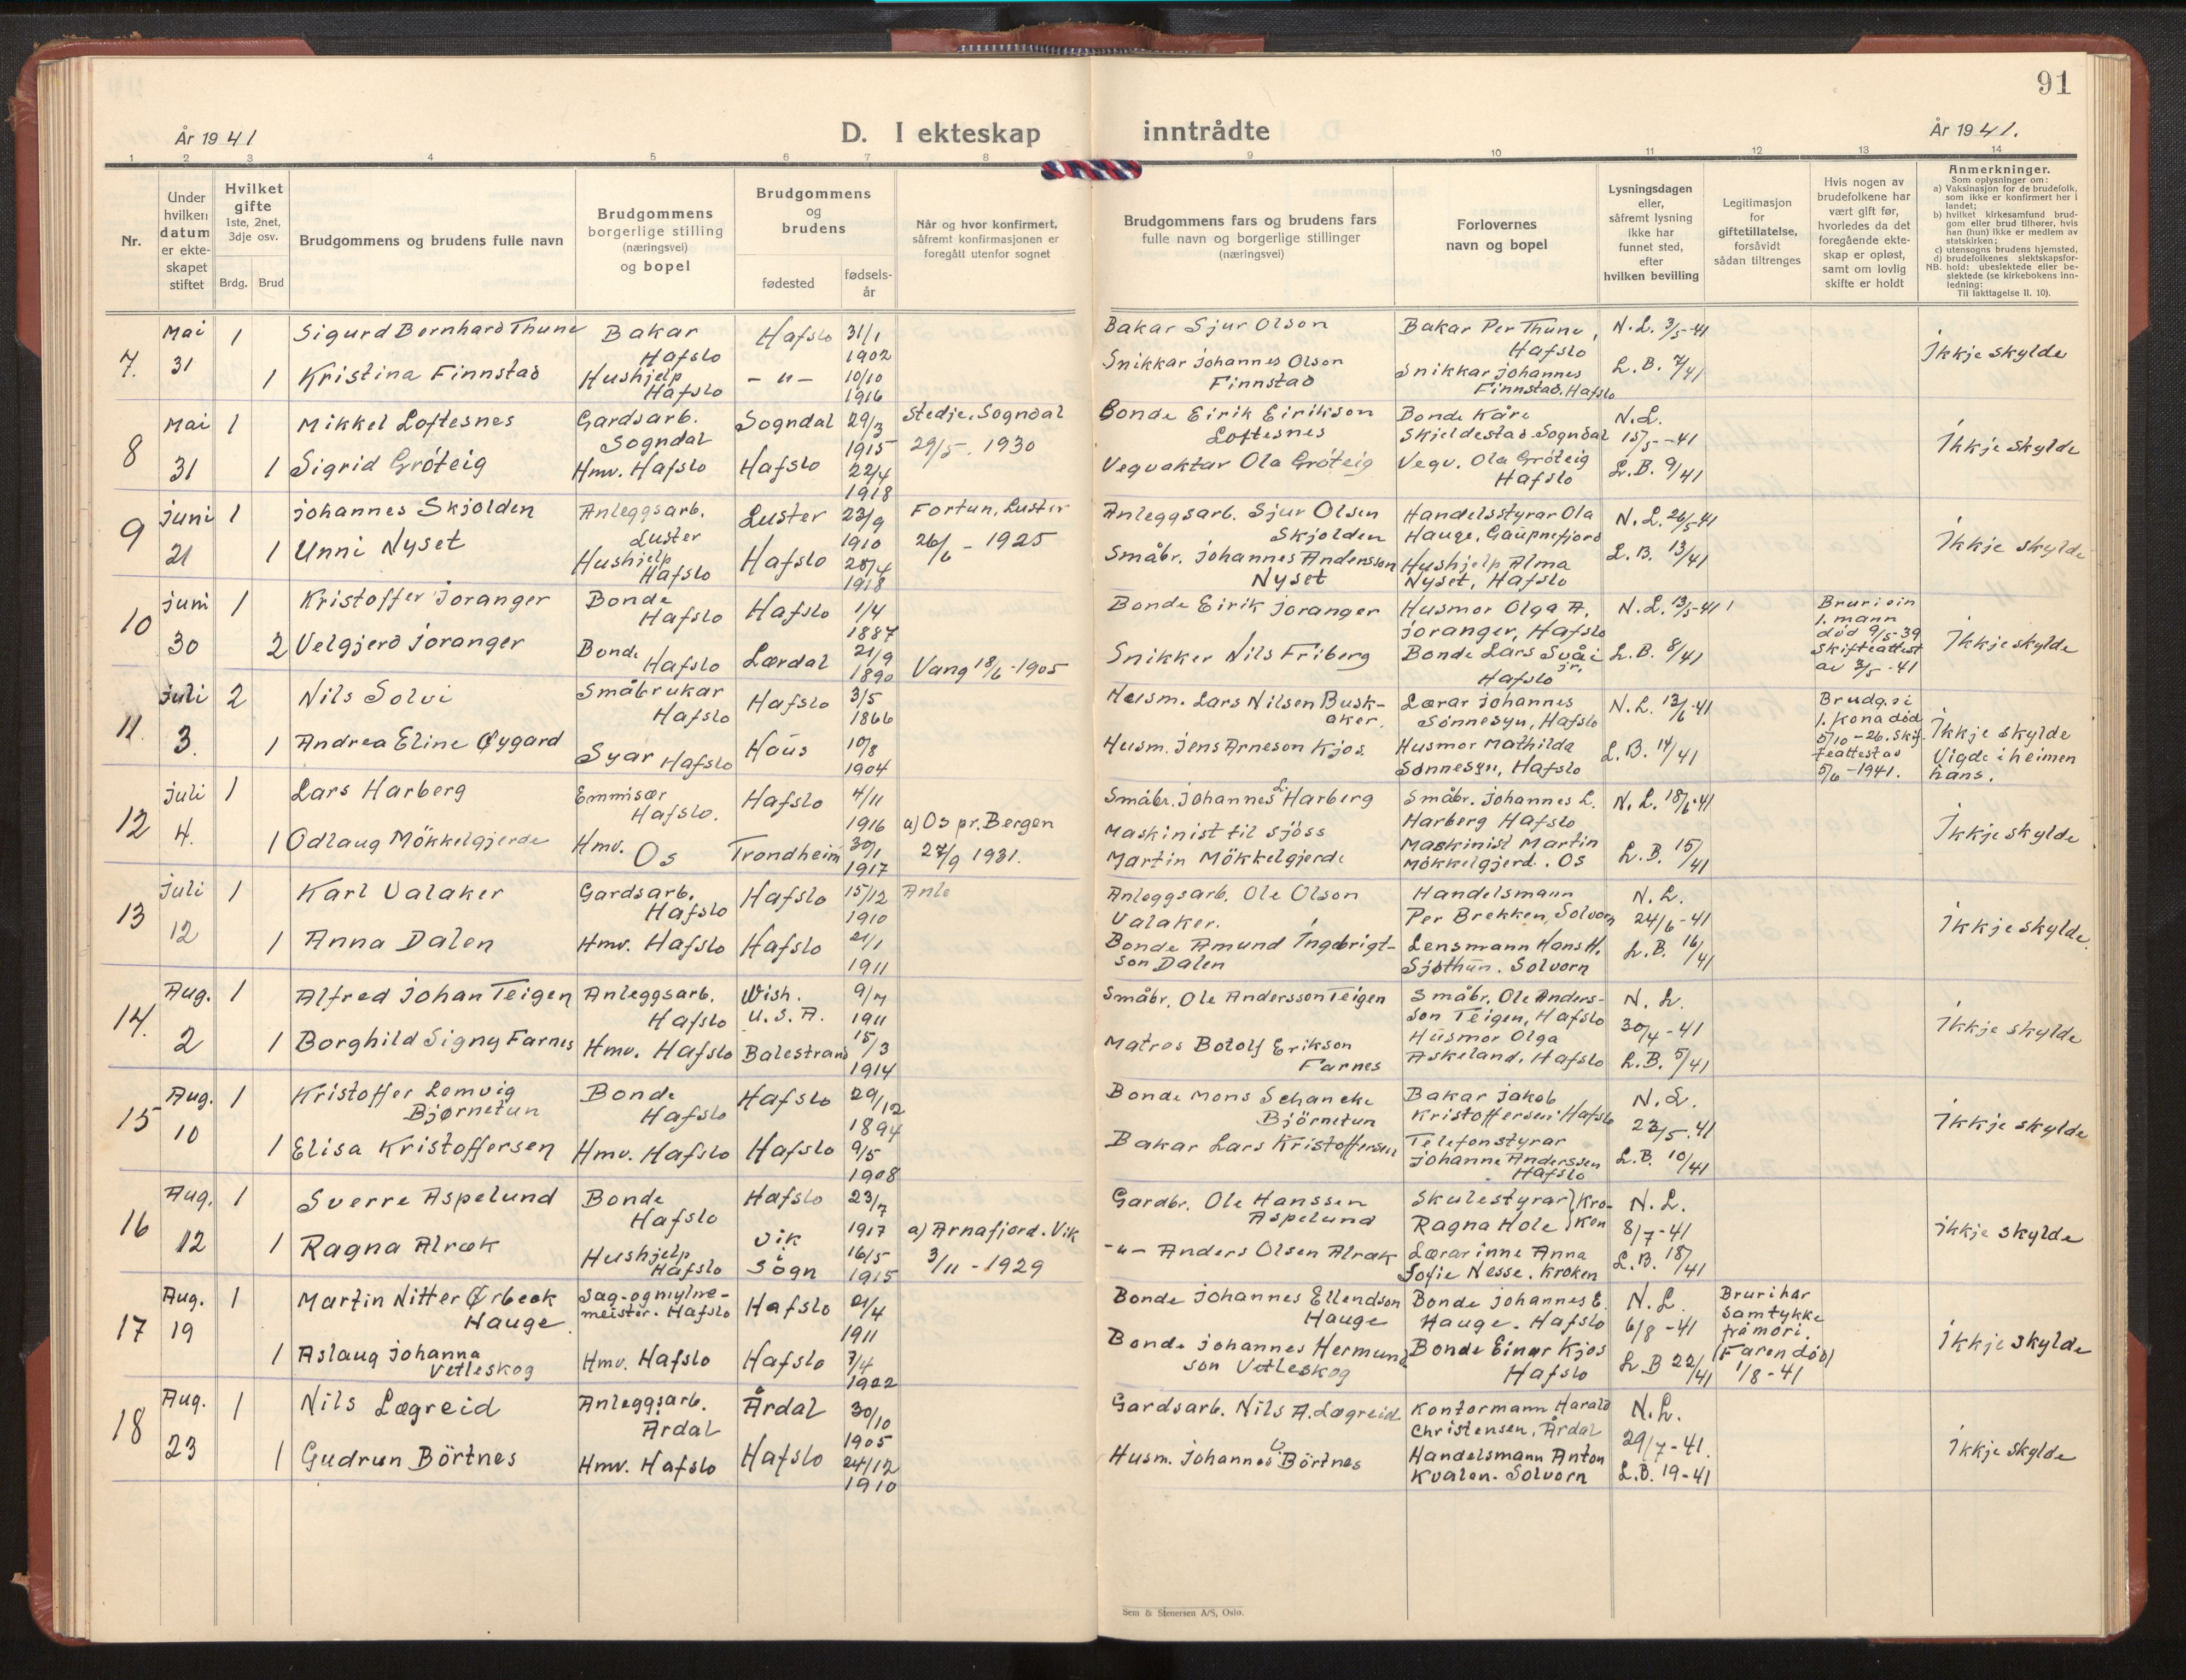 91
År 1941
D. I ekteskap inntrådte
År 1941.
1 2 3 4 5 6 7 8 9 10 11 12 13 14
Nr.
Under hvilken datum er ekteskapet stiftet
Hvilket gifte
1ste, 2net, 3dje osv.
Brdg. Brud
Brudgommens og brudens fulle navn
Brudgommens borgerlige stilling (næringsvei) og bopel
Brudgommens og brudens
fødested
fødsels-år
Når og hvor konfirmert, såfremt konfirmasjonen er foregått utenfor sognet
Brudgommens fars og brudens fars fulle navn og borgerlige stillinger (næringsvei)
Forlovernes navn og bopel
Lysningsdagen eller, såfremt lysning ikke har funnet sted, efter hvilken bevilling
Legitimasjon for giftetillatelse, forsåvidt sådan tiltrenges
Hvis nogen av brudefolkene har vært gift før, hvorledes da det foregående ekteskap er opløst, samt om lovlig skifte er holdt
Anmerkninger.
Som oplysninger om:
a) Vaksinasjon for de brudefolk, som ikke er konfirmert her i landet;
b) hvilket kirkesamfund brudgom eller brud tilhører, hvis han (hun) ikke er medlem av statskirken;
c) utensogns brudens hjemsted,
d) brudefolkenes slektskapsforhold: ubeslektede eller beslektede (se kirkebokens innledning:
NB. Til Iakttagelse II. 10).
7. Mai 31 1 Sigurd Bernhard Thune Bakar Hafslo Hafslo 31/1 1902 Bakar Sjur Olson Bakar Per Thune, Hafslo N.L. 3/5-41 Ikkje skylde
1 Kristina Finnstad Hushjelp Hafslo -"- 10/10 1916 Snikkar Johannes Olson Finnstad Snikkar Johannes Finnstad. Hafslo L.B. 7/41
8 Mai 31 1 Mikkel Loftesnes Gardsarb. Sogndal Sogndal 29/3 1915 Stedje, Sogndal 29/5. 1930 Bonde Eirik Eirikson Loftesnes Bonde Kåre Skjeldestad Sogndal N.L. 15/5-41 Ikkje skylde
1 Sigrid Gróteig Hmv. Hafslo Hafslo 22/4 1918 Vegvaktar Ola Gróteig Vegv. Ola Gróteig Hafslo L.B. 9/41
9 Juni 21 1 Johannes Skjolden Anleggsarb. Luster Luster 23/9 1910 Fortun, Luster 26/6 - 1925 Anleggsarb. Sjur Olsen Skjolden Handelsstyrar Ola Hauge, Gaupnefjord N.L. 26/5-41 Ikkje skylde
1 Unni Nyset Hushjelp Hafslo Hafslo 28/4 1918 Småbr. Johannes Andersson Nyset Hushjelp Alma Nyset, Hafslo L.B. 13/41
10 Juni 30 1 Kristoffer Joranger Bonde Hafslo Hafslo 1/4 1887 Bonde Eirik Joranger Husmor Olga A. Joranger, Hafslo N.L. 13/5-41 Bruri ein 1. mann død 9/5-39 Skifteattest av 3/5-41 Ikkje skylde
2 Velgjerd Joranger Bonde Hafslo Lærdal 21/9 1890 Vang 18/6-1905 Snikker Nils Friberg Bonde Lars Svåi jr. Hafslo L.B. 8/41
11. Juli 3. 2 Nils Solvi Småbrukar Hafslo Hafslo 3/5 1866 Husm. Lars Nilsen Buskaker. Lærar Johannes Sønnesyn, Hafslo N.L. 13/6-41 Brudg. si 1. kona død 5/10-26. Skifteattestad 5/6-1941. Ikkje skylde Vigde i heimen hans.
1 Andrea Eline Øygard Syar Hafslo Haus 10/8 1904 Husm. Jens Arneson Kjos Husmor Mathilda Sønnesyn, Hafslo L.B. 14/41
12 Juli 4. 1 Lars Harberg Emmisær Hafslo. Hafslo 4/11 1916 Småbr. Johannes L. Harberg Småbr. Johannes L. Harberg Hafslo N.L. 18/6-41 Ikkje skylde
1 Odlaug Mökkelgjerde Hmv. Os Trondheim 30/1 1917 a) Os pr. Bergen 27/9 1931. Maskinist til sjøss Martin Mökkelgjerde Maskinist Martin Mökkelgjerd. Os L.B. 15/41
13 Juli 12 1 Karl Valaker Gardsarb. Hafslo Hafslo 15/12 1910 Anle Anleggsarb. Ole Olson Valaker. Handelsmann Per Brekken, Solvorn N.L. 24/6-41 Ikkje skylde.
1 Anna Dalen Hmv. Hafslo Hafslo 21/1 1911 Bonde Amund Ingebrigtson Dalen Lensmann Hans H. Sjøthun. Solvorn L.B. 16/41
14. Aug. 2 1 Alfred Johan Teigen Anleggsarb. Hafslo Wish. U.S.A. 9/7 1911 Småbr. Ole Andersson Teigen Småbr. Ole Andersson Teigen, Hafslo N.L. 30/4-41 Ikkje skylde
1 Borghild Signy Farnes Hmv. Hafslo Balestrand 15/3 1914 Matros Botolf Erikson Farnes Husmor Olga Askeland, Hafslo L.B. 5/41
15 Aug. 10 1 Kristoffer Lemvig Bjørnetun Bonde Hafslo Hafslo 29/12 1894 Bonde Mons Schancke Björnetun Bakar Jakob Kristoffersen Hafslo N.L. 23/5.41 Ikkje skylde
1 Elisa Kristoffersen Hmv. Hafslo Hafslo 9/5 1908 Bakar Lars Kristoffersen Telefonstyrar Johanne Anderssen Hafslo L.B. 10/41
16 Aug. 12 1 Sverre Aspelund Bonde Hafslo Hafslo 23/7 1917 Gardbr. Ole Hanssen Aspelund Skulestyrar Ragna Hole Kroken N.L. 8/7-41 ikkje skylde
1 Ragna Alræk Hushjelp Hafslo Vik i Sogn 16/5 1915 a) Arnafjord. Vik 3/11-1929 -"- Anders Olsen Alræk Lærarinne Anna Sofie Nesse. Kroken L.B. 18/41
17 Aug. 19 1 Martin Nitter Ørbeck Hauge Sag-og mylnemeister. Hafslo Hafslo 21/4 1911 Bonde Johannes Ellendson Hauge Bonde Johannes E. Hauge. Hafslo N.L. 6/8-41 Bruri har samtykke frå mori. (Faren død) 1/8-41 Ikkje skylde
1 Aslaug Johanna Vetleskog Hmv. Hafslo Hafslo 7/4 1922 Bonde Johannes Hermundson Vetleskog Bonde Einar Kjos Hafslo L.B 22/41
18 Aug. 23 1 Nils Lægreid Anleggsarb. Årdal Årdal 30/10 1905 Gardsarb. Nils A. Lægreid Kontormann Harald Christensen, Årdal N.L. 29/7-41. Ikkje skylde
1 Gudrun Börtnes Hmv. Hafslo Hafslo 24/12 1910 Husm. Johannes O. Börtnes Handelsmann Anton Kvalen. Solvorn L.B. 19-41
Sem & Stenersen A/S, Oslo.